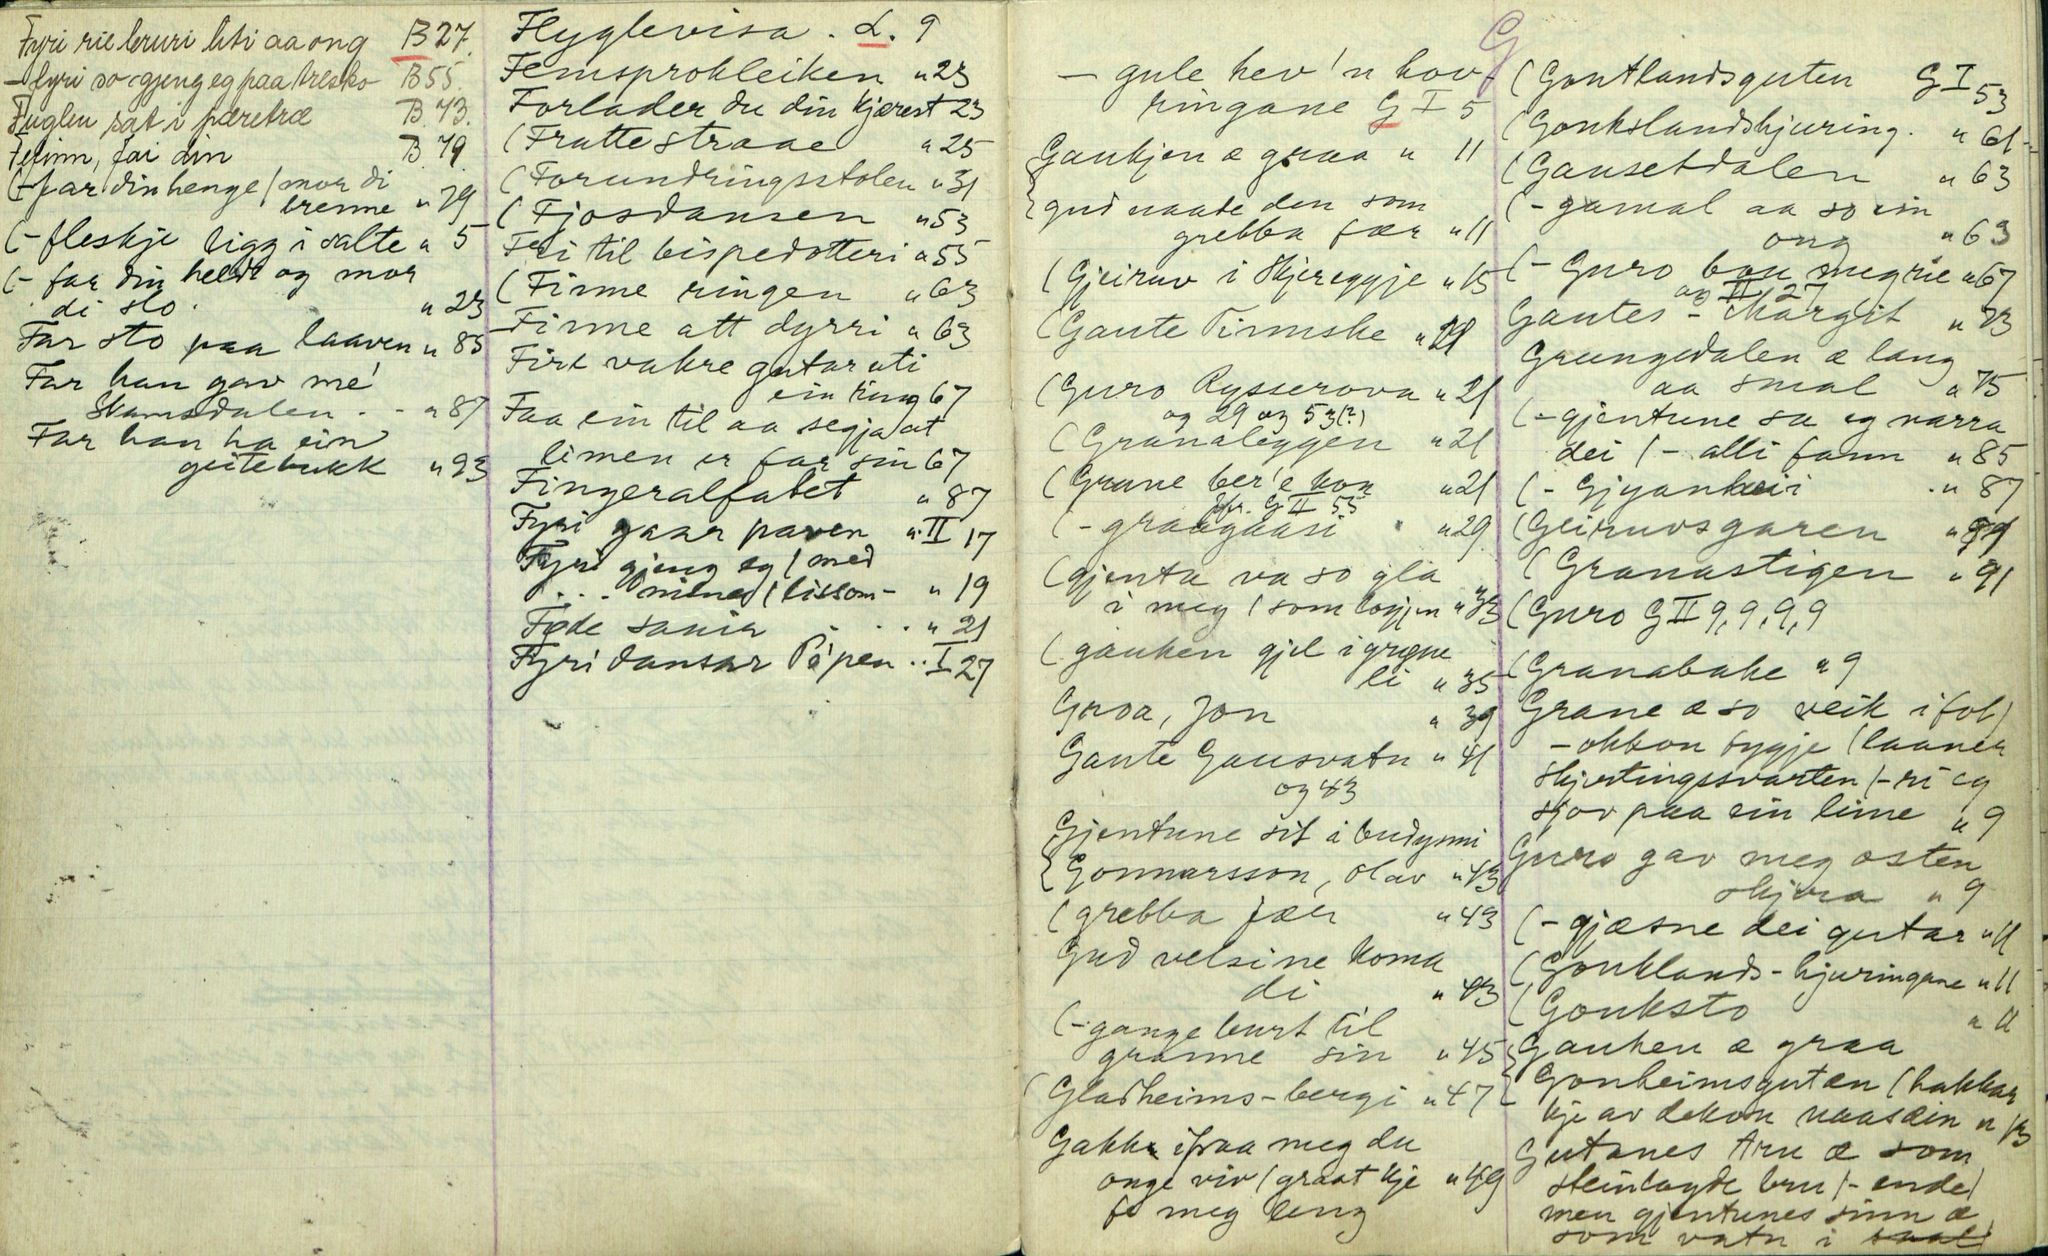 Fyri rie bruri liti aa ong B 27.
- fyri so gjeng eg paa tresko B 55.
Fuglen sat i pæretræ B. 73.
Felinn, fai din B. 79.
(- far din henge / mor di
brenne " 79
(- fleskje ligg i salte " 5
(- far din heldt og mor
di slo. " 23
Far sto paa laaven " 85
Far han gav me'
Skamsdalen . - " 87
Far han ha ein
geitebukk " 93
Flyglevisa . L. 9
Femsprokleiken " 23
Forlader du din kjærest 23
(Fratte straae " 25
(Forundringsstolen " 31
(Fjosdansen " 53
Fri til bispedotteri " 55
(Finne ringen " 63
Finne att dyrri " 63
Fire vakre gutar uti
ein ring 67
Faa ein til aa segja at
limen er far sin 67
Fingeralfabet " 87
Fyri gaar paven " II 17
Fyri gjeng eg / med
. . . mines / lissom - " 19
Føde sauir . . . " 21
Fyri dansar Påpen .. I 27
G
- gule hev'n hov-
ringane G I 5
Gaukjen æ graa " 11
{gud naade den som
grebba fær " 11
(Gjeiruv i Skjereggje " 15
(Gaute Tinnske " 21
(Guro Rysserova " 21
og 29 og 53(?)
(Granaleggen " 21
(Grane ber'e kon " 21
Jfr. G II 55
(- graagaasi " 29
(gjenta va so gla
i meg / som loggjen " 33
(gauken gjel i grøne
li " 35
Groa, Jon " 39
Gaute Gausvatn " 41
og 43
Gjentune sit i budynni
{Gonnarsson, Olav " 43
(grebba fær " 43
Gud velsine koma
di " 43
(- gange burt til
granne sin " 45
(Gladheims-bergi " 47
Gakk ifraa meg du
onge viv / graat kje " 49
fe meg leng
(Gontlandsguten G I 53
(Gonkslandshjuring. " 61
(Gausetdalen " 63
(- gamal aa so ein
ong " 63
(- Guro bau meg rie " 67
og II 27
Gautes - Margit " 73
Grungedalen æ lang
aa smal " 75
(- gjentune sa eg narra
dei / - alli fann " 85
(- Gjyvankeii . " 87
(Geiruvsgaren " 89
(Granastigen " 91
(Guro G II 9, 9, 9, 9
(Granabake " 9
Grane æ so veik i fot /
- okkon bygje / laaner
Skjertingssvarten / - ri eg
sjov paa ein lime " 9
Guro gav meg osten
skjera " 9
(- gjæsne dei gutar " 11
(Gonklands-hjuringane " 11
(Gonksto " 11
Gauken æ graa
{Gonheimsguten / hakkar
kje av dekon naasdin " 13
Gutanes tru æ som
steinlagde bru / - ende /
men gjentunes sinn æ
som vatn i